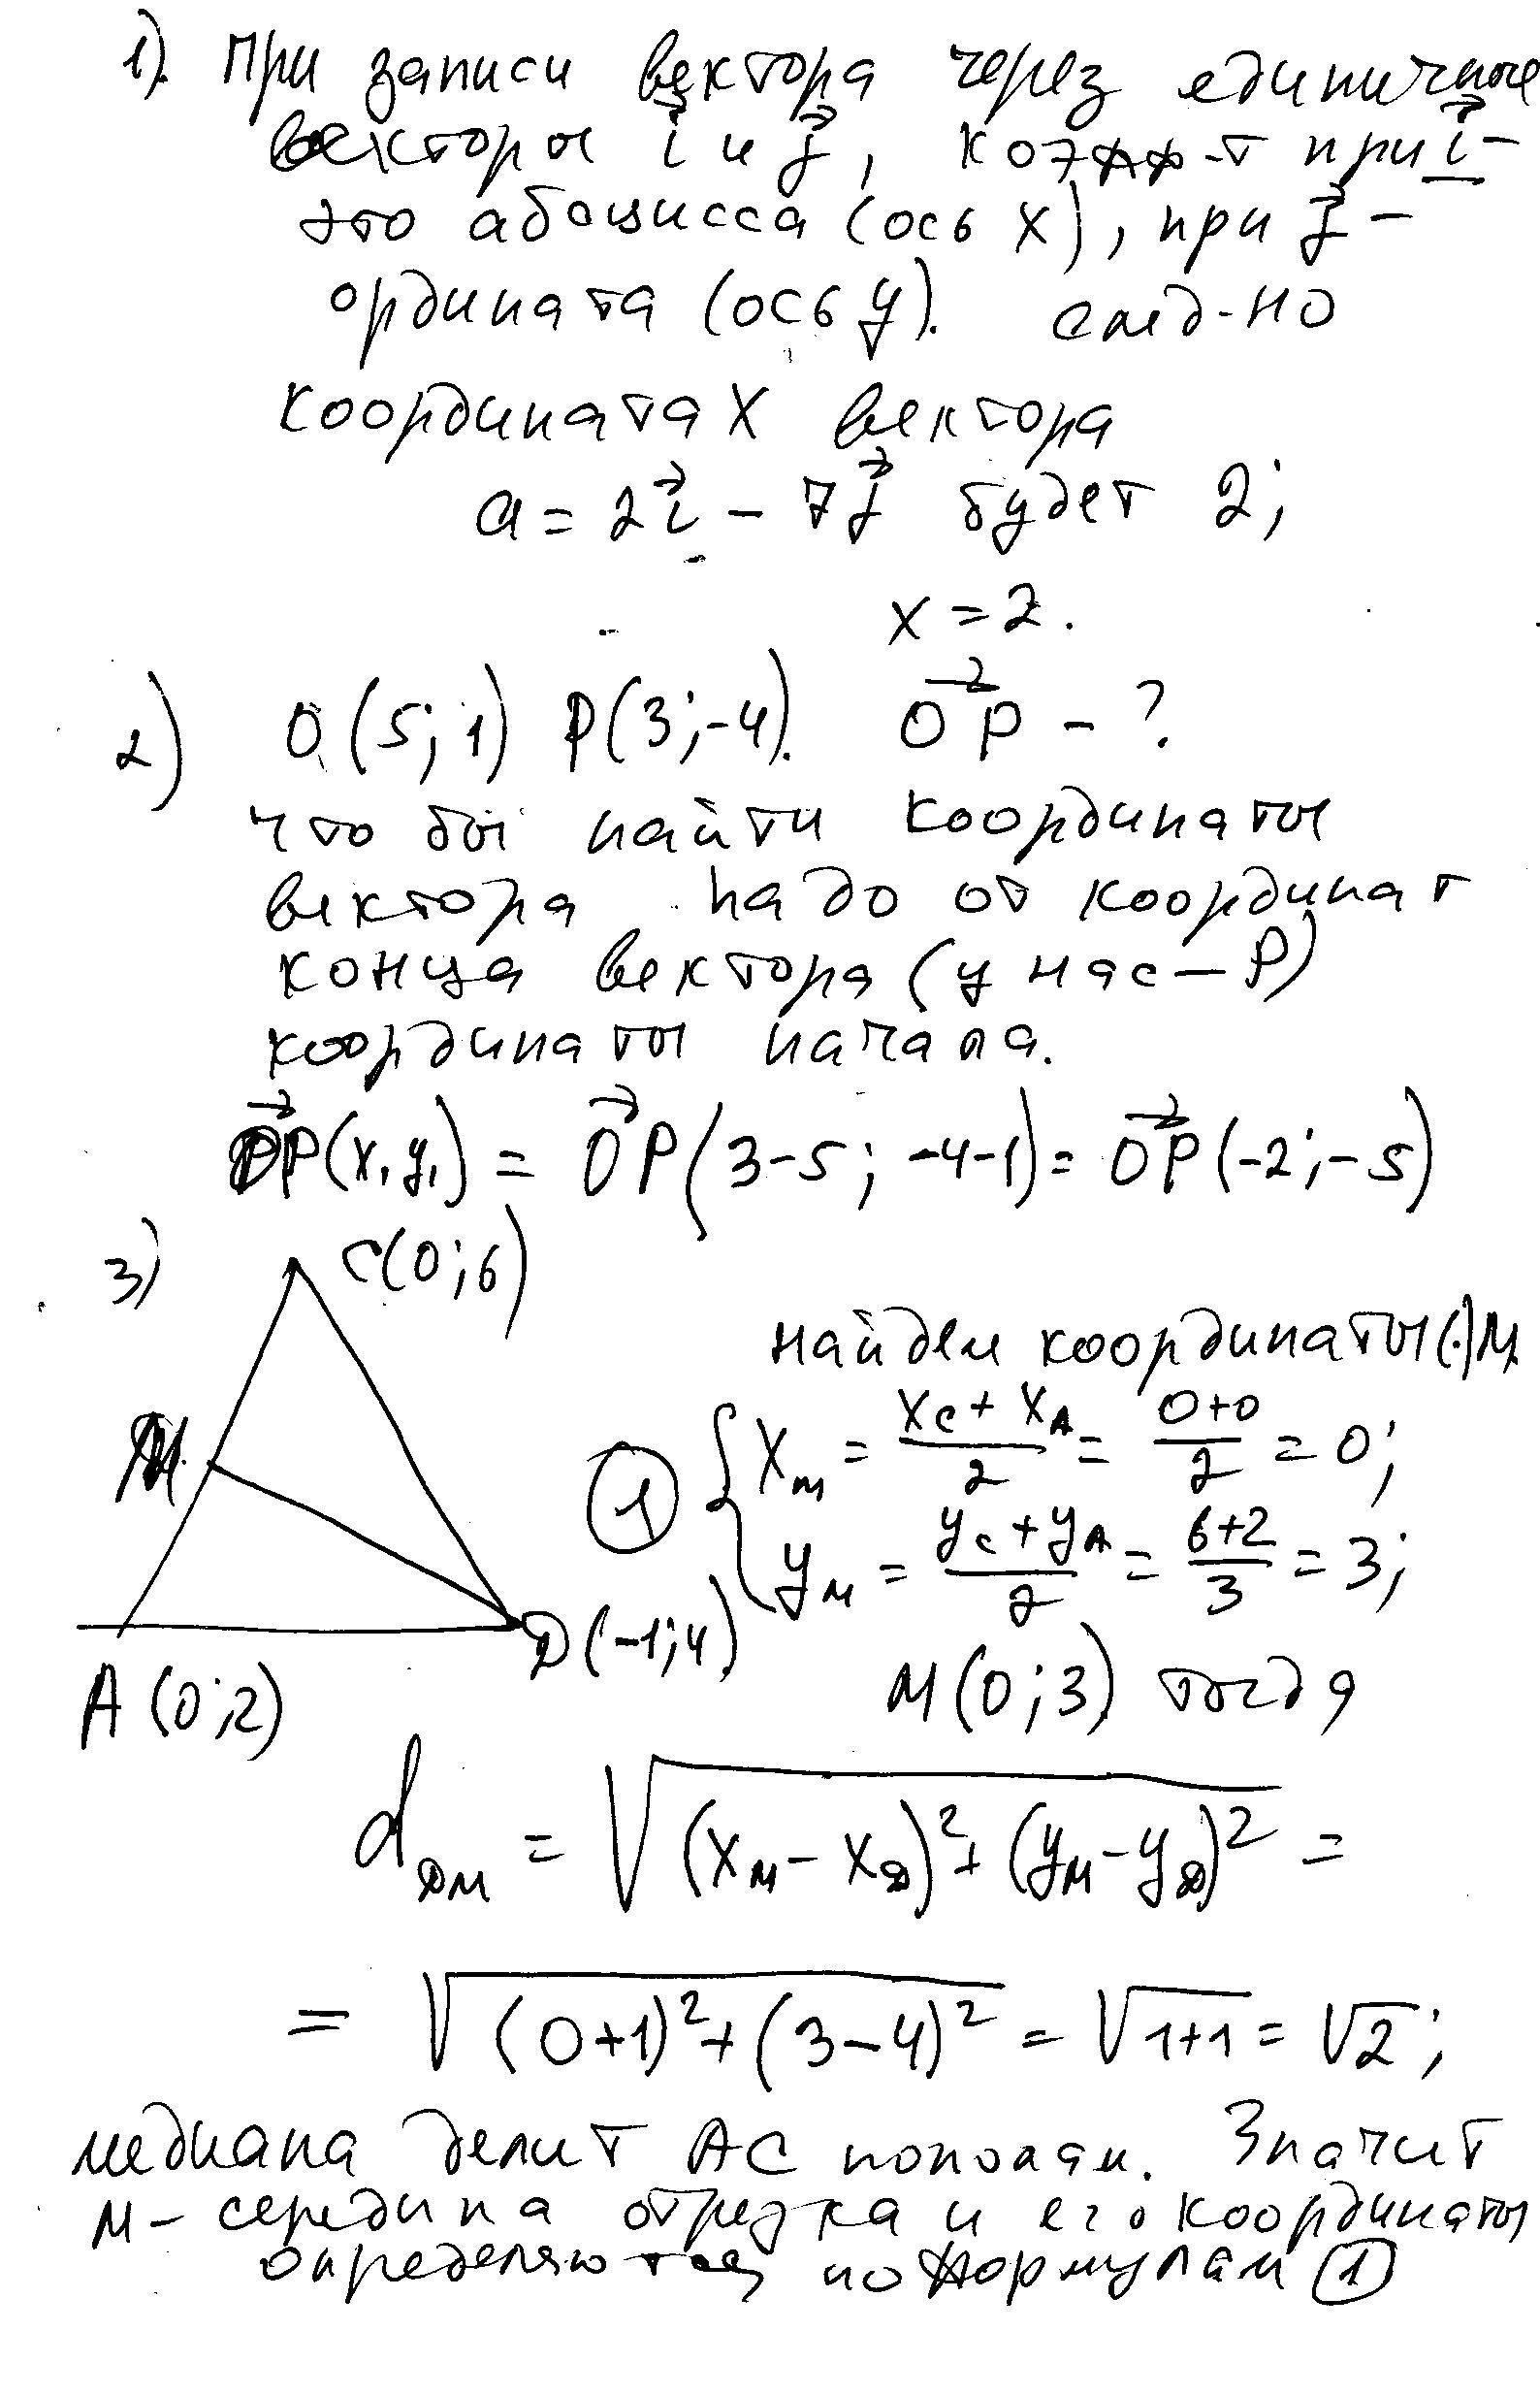 1). При записи вектора через единичные
векторы i⃗ и j⃗, коэфф-т при i⃗ -
это абсцисса (ось x), при j⃗ -
ордината (ось y). след-но
координата X вектора
a = 2i⃗ - 7j⃗ будет 2;
x = 2.
2) O(5; 1) P(3; -4). OP⃗ - ?
что бы найти координаты
вектора надо от координат
конца вектора (у нас - P)
координаты начала.
OP⃗(x, y,) = OP⃗(3-5; -4-1) = OP⃗(-2; -5)
3) C(0; 6)
найдем координаты (·) M.
M
① { x_м = (x_c + x_A)/2 = (0+0)/2 = 0;
y_м = (y_c + y_A)/2 = (6+2)/3 = 3;
D(-1; 4)
A(0; 2)
M(0; 3) тогда
d_DM = √((x_M - x_D)² + (y_M - y_D)²) =
= √((0+1)² + (3-4)²) = √(1+1) = √2;
медиана делит AC пополам. Значит
M - середина отрезка и его координаты
определяются по формулам ①